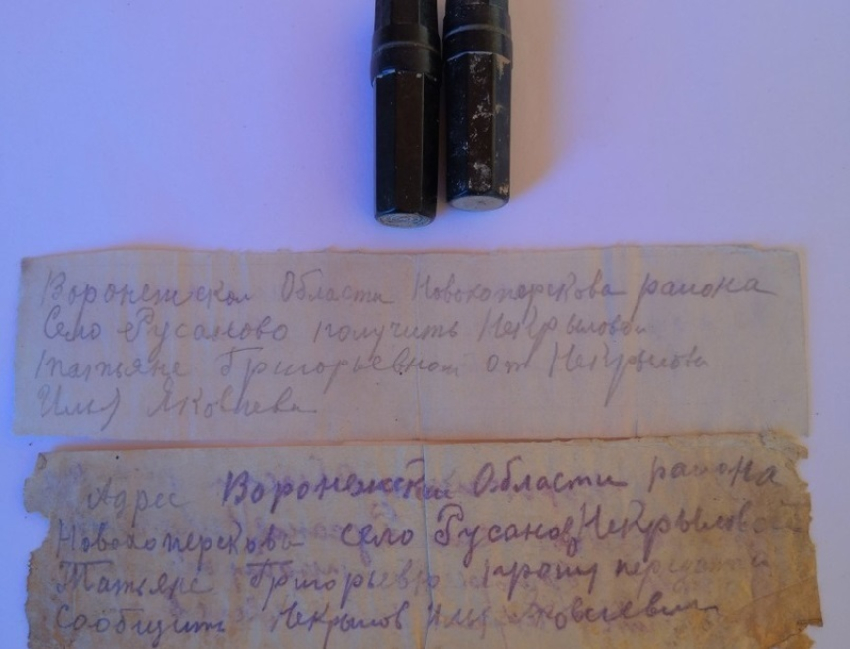 Воронежскои Области Новохоперскова раиона
Село Русаново получить Некрыловои
Татьяне Григорьевнои от Некрылова
Илья Яковлева
Адрес Воронежскои Области раиона
Новохоперскова село Русанов Некрыловой
Татьяне Григорьевн прошу передати
Сообщить Некрылов Илья Яковлевич